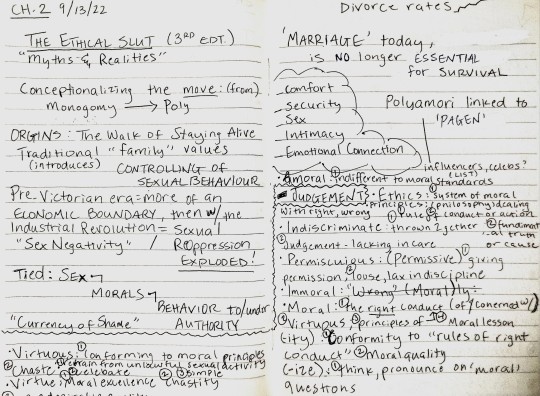 CH. 2 9/13/22
THE ETHICAL SLUT (3RD EDT.)
"Myths & Realities"
Conceptionalizing the move: (from)
Monogomy → Poly
ORGINS: The Walk of Staying Alive
Traditional "family" values
(introduces) CONTROLLING OF
SEXUAL BEHAVIOUR
Pre-Victorian era = more of an
ECONOMIC BOUNDARY, then w/ the
Industrial Revolution = Sexual
"Sex Negativity" / Repression
EXPLODED!
Tied: SEX
MORALS
BEHAVIOR to/under
"Currency of Shame" AUTHORITY
• Virtuous: ① Conforming to moral principles
② Chaste: ① refrain from unlawful sexual activity
② Celebate ③ simple
• Virtue: Moral excellence ② Chastity
Divorce rates
'MARRIAGE' today,
is NO longer ESSENTIAL
for SURVIVAL
Comfort
Security
Sex
Intimacy
Emotional Connection
Polyamori linked to
'PAGEN'
influencers, celebs?
(LIST)
• Amoral: Indifferent to moral standards
JUDGEMENTS • Ethics: ① system of moral
principles: ② philosophy dealing
with right, wrong ① Rule of conduct or action
• Indiscriminate: thrown 2gether ② fundament-
al truth
③ Judgement - lacking in care or cause
• Permiscuigus: (Permissive) ① giving
permission, ② louse, lax in discipline
• Immoral: "Wrong" (Moral) ly:
• Moral: ① the right conduct (of/concerned w/)
② Virtuous ③ principles of ④ Moral lesson
(ity) ① Conformity to "rules of right
conduct" ② Moral quality
(-ize): ① think, pronounce on 'moral'
questions